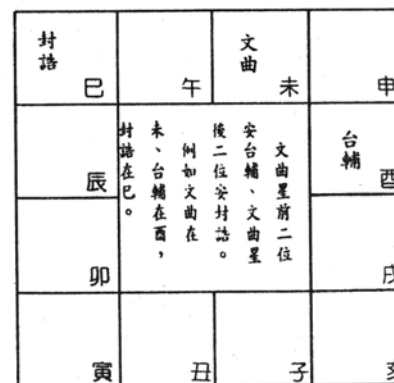 封誥
巳
午
文曲
未
申
辰
文曲星前二位
安台輔、文曲星
後二位安封誥。
例如文曲在
未、台輔在酉，
封誥在巳。
台輔
酉
卯
戌
寅
丑
子
亥